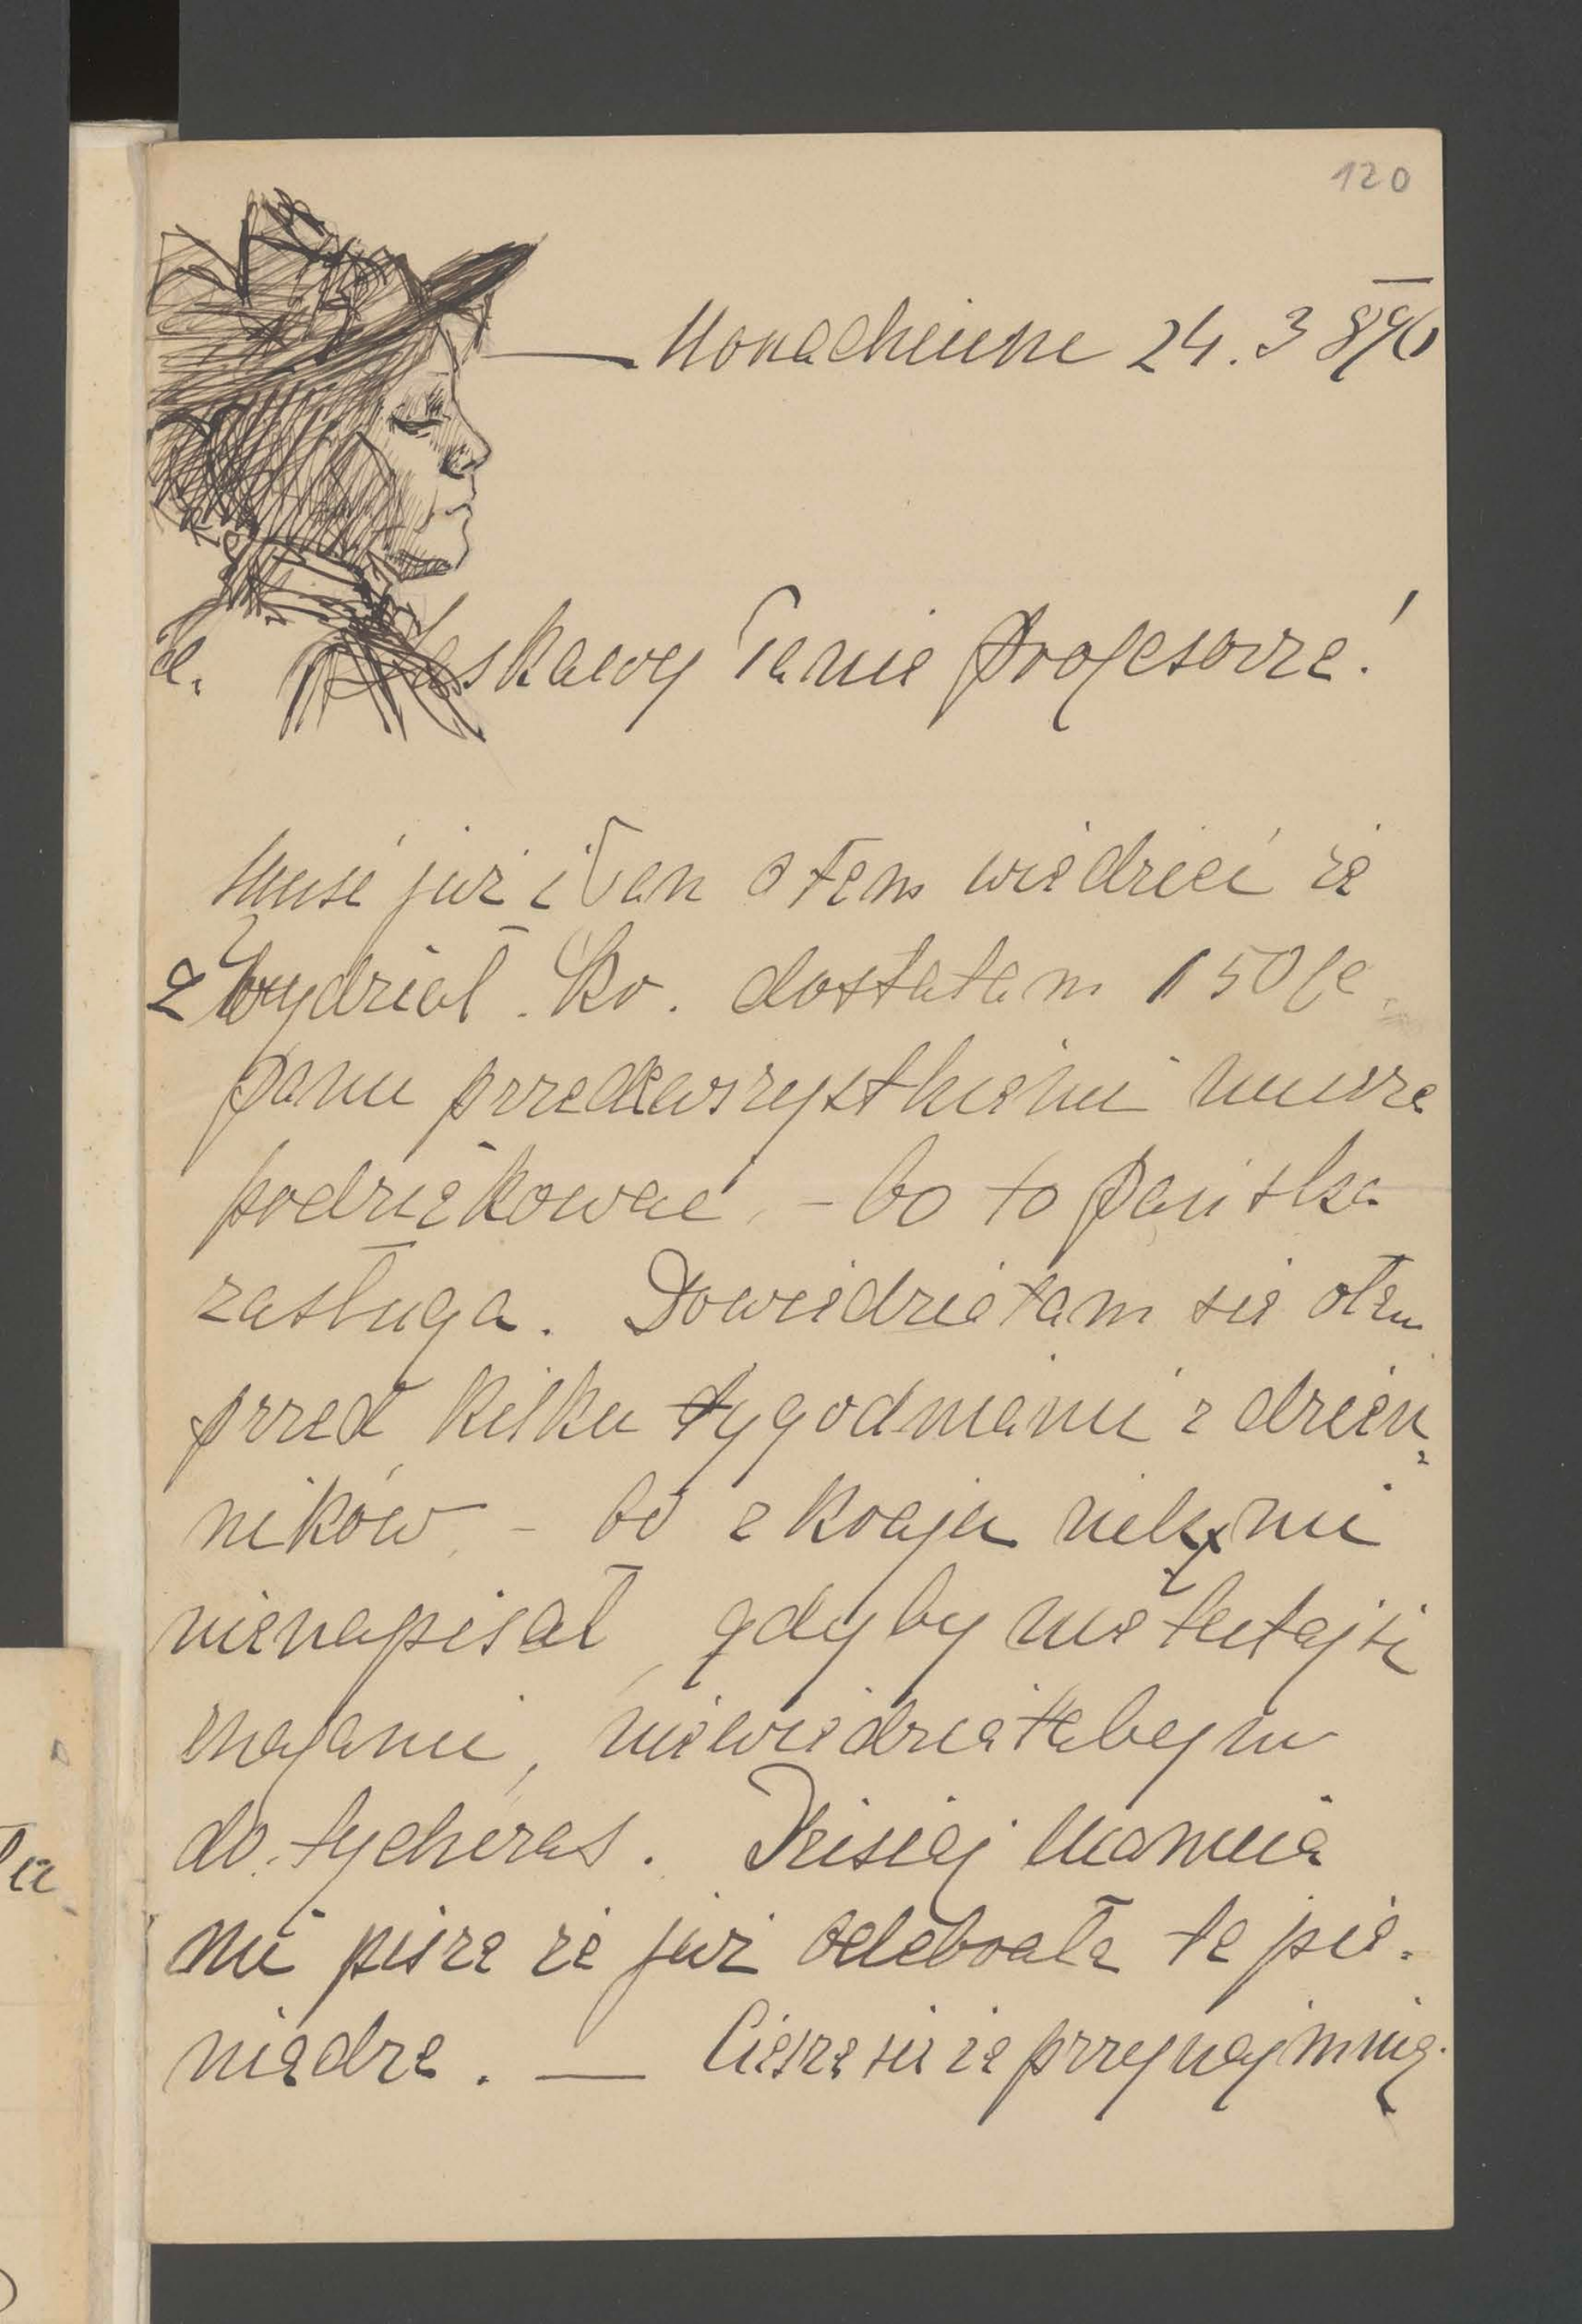 120
Monachium 24. 3 890
Łaskawy Panie Profesorze!
Musi już i Pan o tem wiedzieć że
z Wydział. Kr. dostałam 150
Panu przedewszystkiemi muszę
podziękować, – bo to Pańska
zasługa. Dowiedziałam się otem
przed kilku tygodniami z dzien
ników – bo z kraju nikt mi
nienapisał, gdyby nie tutajsi
znajomi, niewiedziałabym
do tychczas. Dzisiaj Mamcia
mi pisze że już odebrała te pie.
niądze. — Cieszę się że przynajmniej